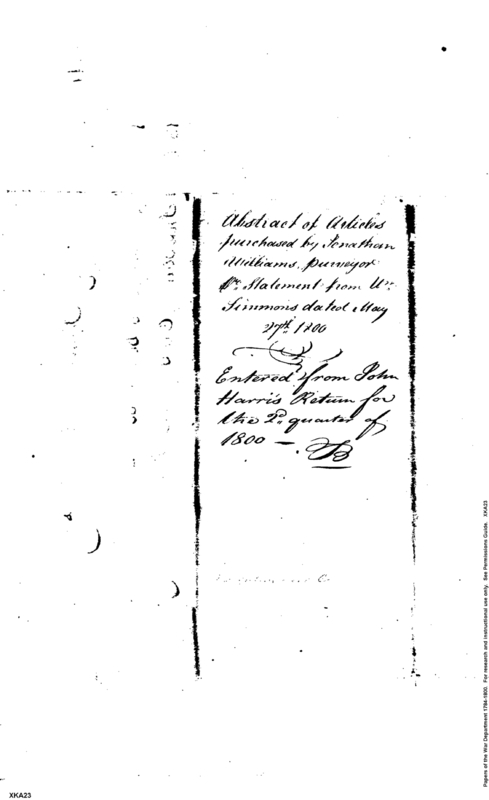 Abstract of Articles
purchased by Jonathan
Williams, purveyor
Pr. Statement from Wm.
Simmons dated May
27th. 1800
Entered from John
Harris Return for
the 2d. quarter of
1800 — . JB
Papers of the War Department 1784-1800. For research and instructional use only. See Permissions Guide. XKA23
XKA23